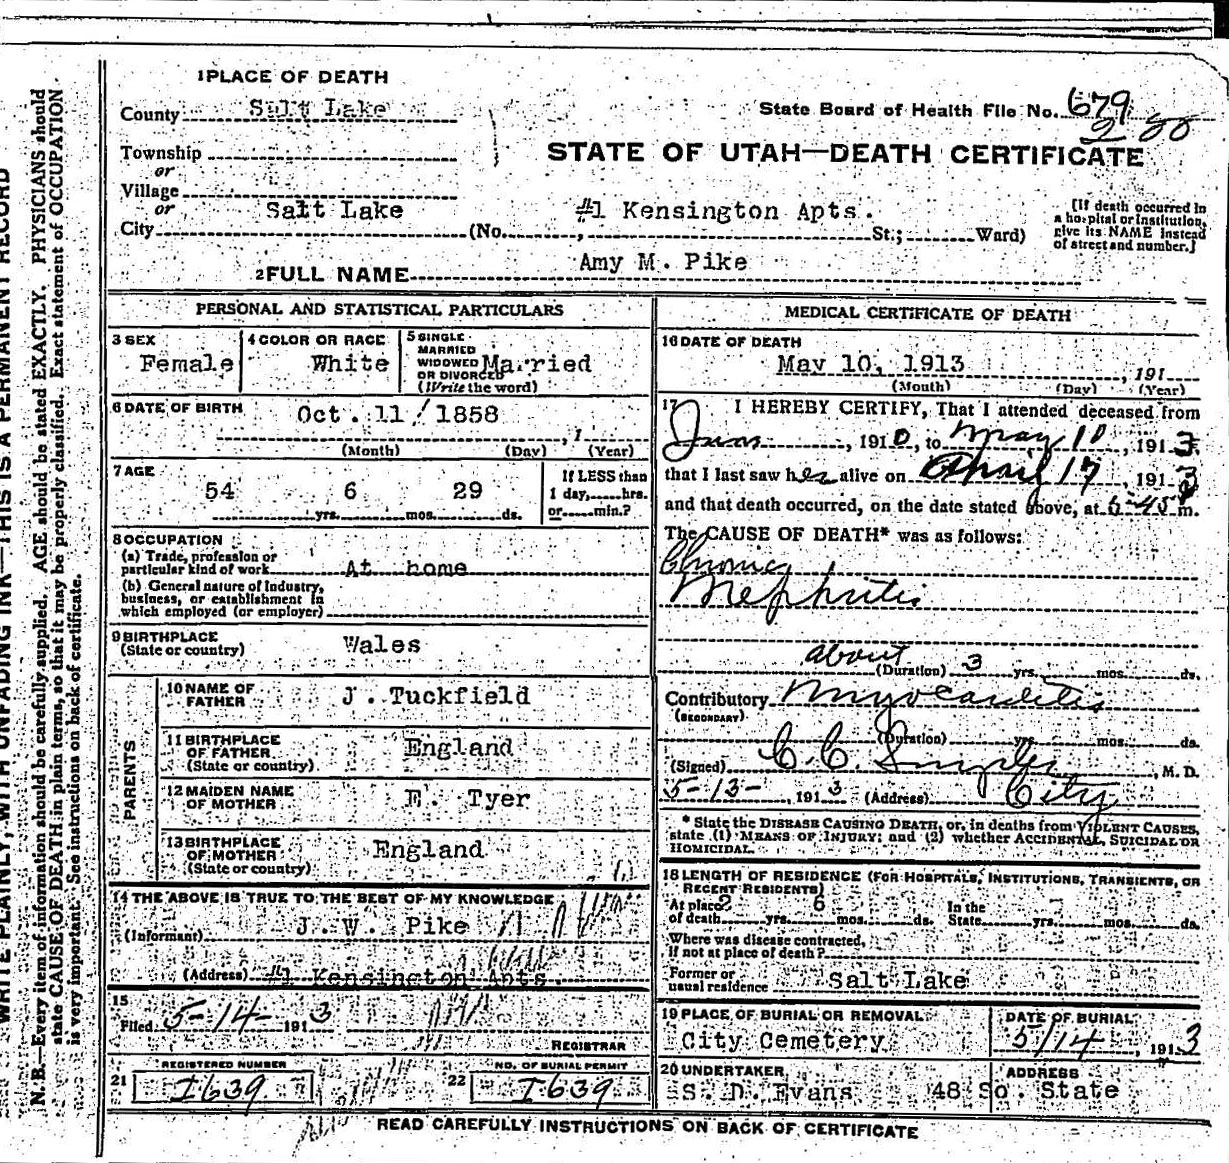 WRITE PLAINLY, WITH UNFADING INK—THIS IS A PERMANENT RECORD
N. B.—Every item of information should be carefully supplied. AGE should be stated EXACTLY. PHYSICIANS should
state CAUSE OF DEATH in plain terms, so that it may be properly classified. Exact statement of OCCUPATION
is very important. See instructions on back of certificate.
1 PLACE OF DEATH
County Salt Lake
State Board of Health File No. 679
Township
or
Village
or
City Salt Lake
STATE OF UTAH—DEATH CERTIFICATE
(No. #1 Kensington Apts. St.; Ward)
[If death occurred in
a hospital or institution,
give its NAME instead
of street and number.]
2 FULL NAME Amy M. Pike
PERSONAL AND STATISTICAL PARTICULARS
3 SEX
Female
4 COLOR OR RACE
White
5 SINGLE
MARRIED
WIDOWED
OR DIVORCED
(Write the word)
Married
6 DATE OF BIRTH
Oct. 11 / 1858
, 1
(Month) (Day) (Year)
7 AGE
54 6 29
yrs. mos. ds.
If LESS than
1 day, hrs.
or min.?
8 OCCUPATION
(a) Trade, profession or
particular kind of work At home
(b) General nature of industry,
business, or establishment in
which employed (or employer)
9 BIRTHPLACE
(State or country) Wales
PARENTS
10 NAME OF
FATHER J. Tuckfield
11 BIRTHPLACE
OF FATHER
(State or country) England
12 MAIDEN NAME
OF MOTHER E. Tyer
13 BIRTHPLACE
OF MOTHER
(State or country) England
14 THE ABOVE IS TRUE TO THE BEST OF MY KNOWLEDGE
(Informant) J. W. Pike
(Address) #1 Kensington Apts.
15
Filed 5-14- 1913
REGISTRAR
REGISTERED NUMBER
21 I639
NO. OF BURIAL PERMIT
22 I639
MEDICAL CERTIFICATE OF DEATH
16 DATE OF DEATH
May 10, 1913 , 191
(Month) (Day) (Year)
17 I HEREBY CERTIFY, That I attended deceased from
, 1910, to May 10, 1913
that I last saw her alive on April 17, 1913
and that death occurred, on the date stated above, at 6-45 m.
The CAUSE OF DEATH* was as follows:
Chronic
Nephritis
about
(Duration) 3 yrs. mos. ds.
Contributory Myocarditis
(SECONDARY)
(Duration) yrs. mos. ds.
(Signed) C. C. , M. D.
5-13- , 1913 (Address) City
* State the DISEASE CAUSING DEATH, or, in deaths from VIOLENT CAUSES,
state (1) MEANS OF INJURY; and (2) whether ACCIDENTAL, SUICIDAL OR
HOMICIDAL.
18 LENGTH OF RESIDENCE (FOR HOSPITALS, INSTITUTIONS, TRANSIENTS, OR
RECENT RESIDENTS)
At place 2 6 In the
of death yrs. mos. ds. State yrs. mos. ds.
Where was disease contracted,
if not at place of death?
Former or
usual residence Salt Lake
19 PLACE OF BURIAL OR REMOVAL
City Cemetery
DATE OF BURIAL
5/14 , 1913
20 UNDERTAKER
S. D. Evans
ADDRESS
48 So. State
READ CAREFULLY INSTRUCTIONS ON BACK OF CERTIFICATE